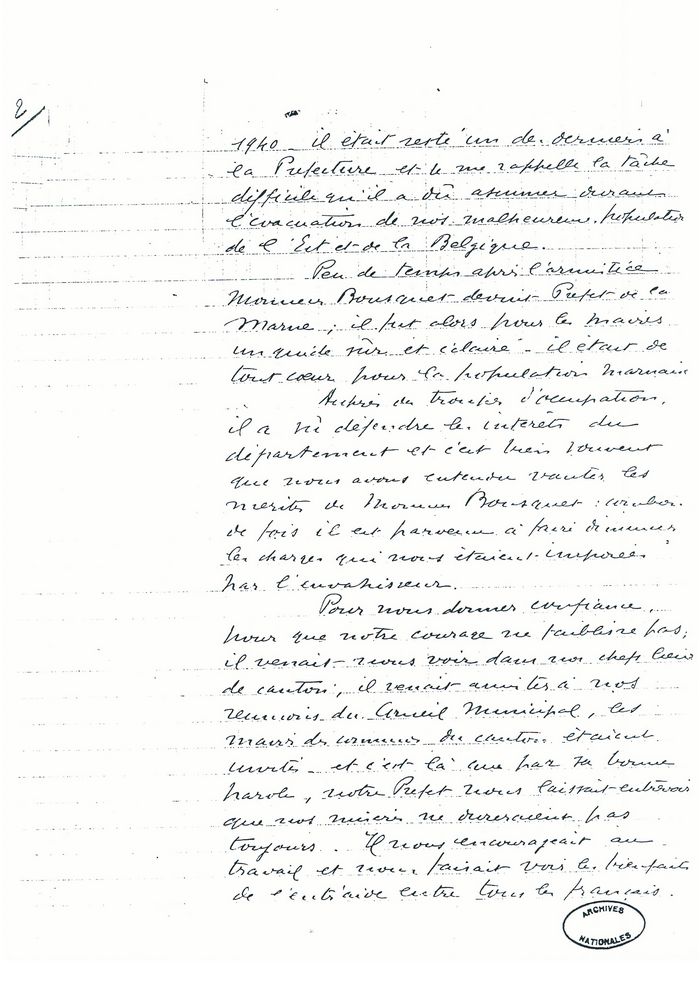 2/
1940 - il était resté un des derniers à
la Prefecture et je me rappelle la tâche
difficile qu'il a dû assumer durant
l'évacuation de nos malheureuses populations
de l'Est et de la Belgique.
Peu de temps après l'armistice
Monsieur Bousquet devint Prefet de la
Marne ; il fut alors pour les maires
un guide sûr et éclairé - il était de
tout cœur pour la population marnaise
Auprès des troupes d'occupation,
il a su défendre les intérêts du
département et c'est bien souvent
que nous avons entendu vanter les
mérites de Monsieur Bousquet : combien
de fois il est parvenu à faire diminuer
les charges qui nous étaient imposées
par l'envahisseur.
Pour nous donner confiance,
pour que notre courage ne faiblisse pas,
il venait nous voir dans nos chefs lieux
de canton, il venait assister à nos
reunions du Conseil Municipal, les
maires des communes du canton étaient
invités - et c'est là que par sa bonne
parole, notre Prefet nous laissait entrevoir
que nos misères ne dureraient pas
toujours. Il nous encourageait au
travail et nous faisait voir les bienfaits
de l'entr'aide entre tous les français.
ARCHIVES
NATIONALES